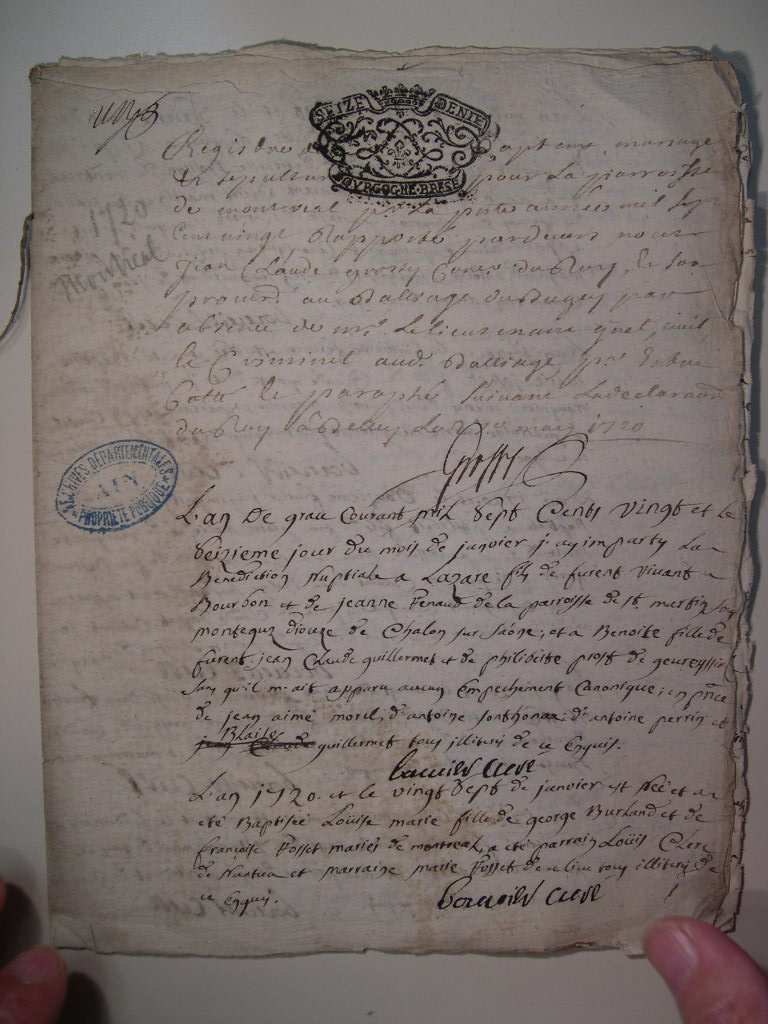 SEIZE DENIE
BOVRGOGNE·BRESE
Registre de mariage
et sepultur pour La parroisse
de montreal pr La pnte année mil sept
Cent vingt Rapporté pardevant nous
Jean Claude grossy Coner du Roy, et son
procurr au Bailliage du Bugey par
absence de mr. Le lieutenant gnel, civil
et Criminel aud. Bailliage,
Cotté et paraphé suivant La declaraon
du Roy à Belley Le mars 1720
1720
Montreal
Grossy
ARCHIVES DÉPARTEMENTALES
AIN
PROPRIÉTÉ PUBLIQUE
L'an De grace Courant mil Sept Cents vingt et le
seizieme jour du mois de janvier j'ay imparty La
Benediction Nuptiale a Lazare fils de furent vivant
Bourbon et de jeanne Fenaud de la parroisse de st martin
diocize de Chalon sur Saône; et a Benoite fille de
furent jean Claude guillermet et de philiberte prost de
sans qu'il m'ait apparu aucun Empechement Canonique; en pnce
de jean aimé morel, d'antoine sonthonax, d'antoine perrin et
Blaise
jean Claude guillermet tous illiteris de ce Enquis.
Curé
L'an 1720. et le vingt Sept de janvier est Née et a
eté Baptisée Louise marie fille de george Burland et de
françoise Fosset mariés de montreal, a eté parrain Loüis Clerc
de Nantua et marraine marie Fosset de tous illiteris de
ce Enquis.
Curé
1